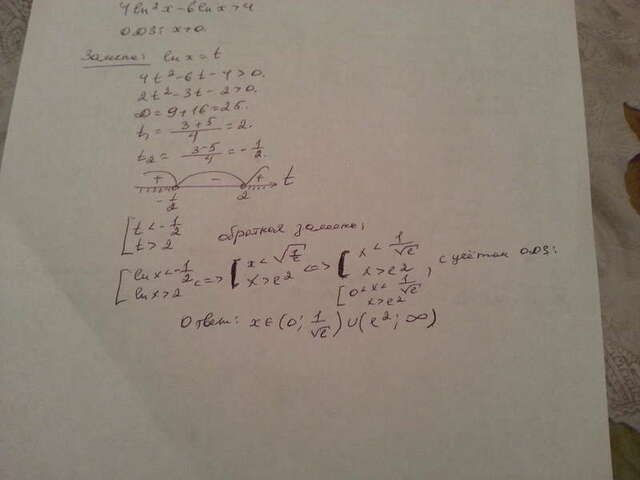 4ln²x-6lnx>4
О.О.З: x>0.
Замена: ln x = t
4t²-6t-4>0.
2t²-3t-2>0.
D=9+16=25.
t₁ = (3+5)/4 = 2.
t₂ = (3-5)/4 = -1/2.
+ - + t
-1/2 2
[ t < -1/2
t > 2
обратная замена:
[ ln x < -1/2
ln x > 2 <=> [ x < √(1/e)
x > e² <=> [ x < 1/√e
x > e² , с учётом О.О.З:
[ 0 < x < 1/√e
x > e²
Ответ: x ∈ (0; 1/√e) ∪ (e²; ∞)